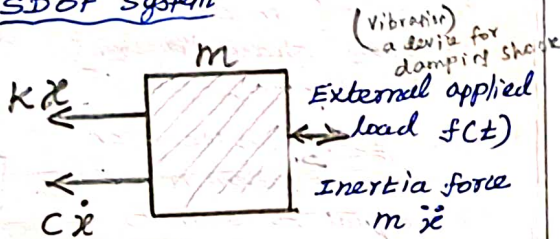 SDOF System
(Vibration)
a device for
damping shock
m
Kx
External applied
load f(t)
Inertia force
mẍ
Cẋ